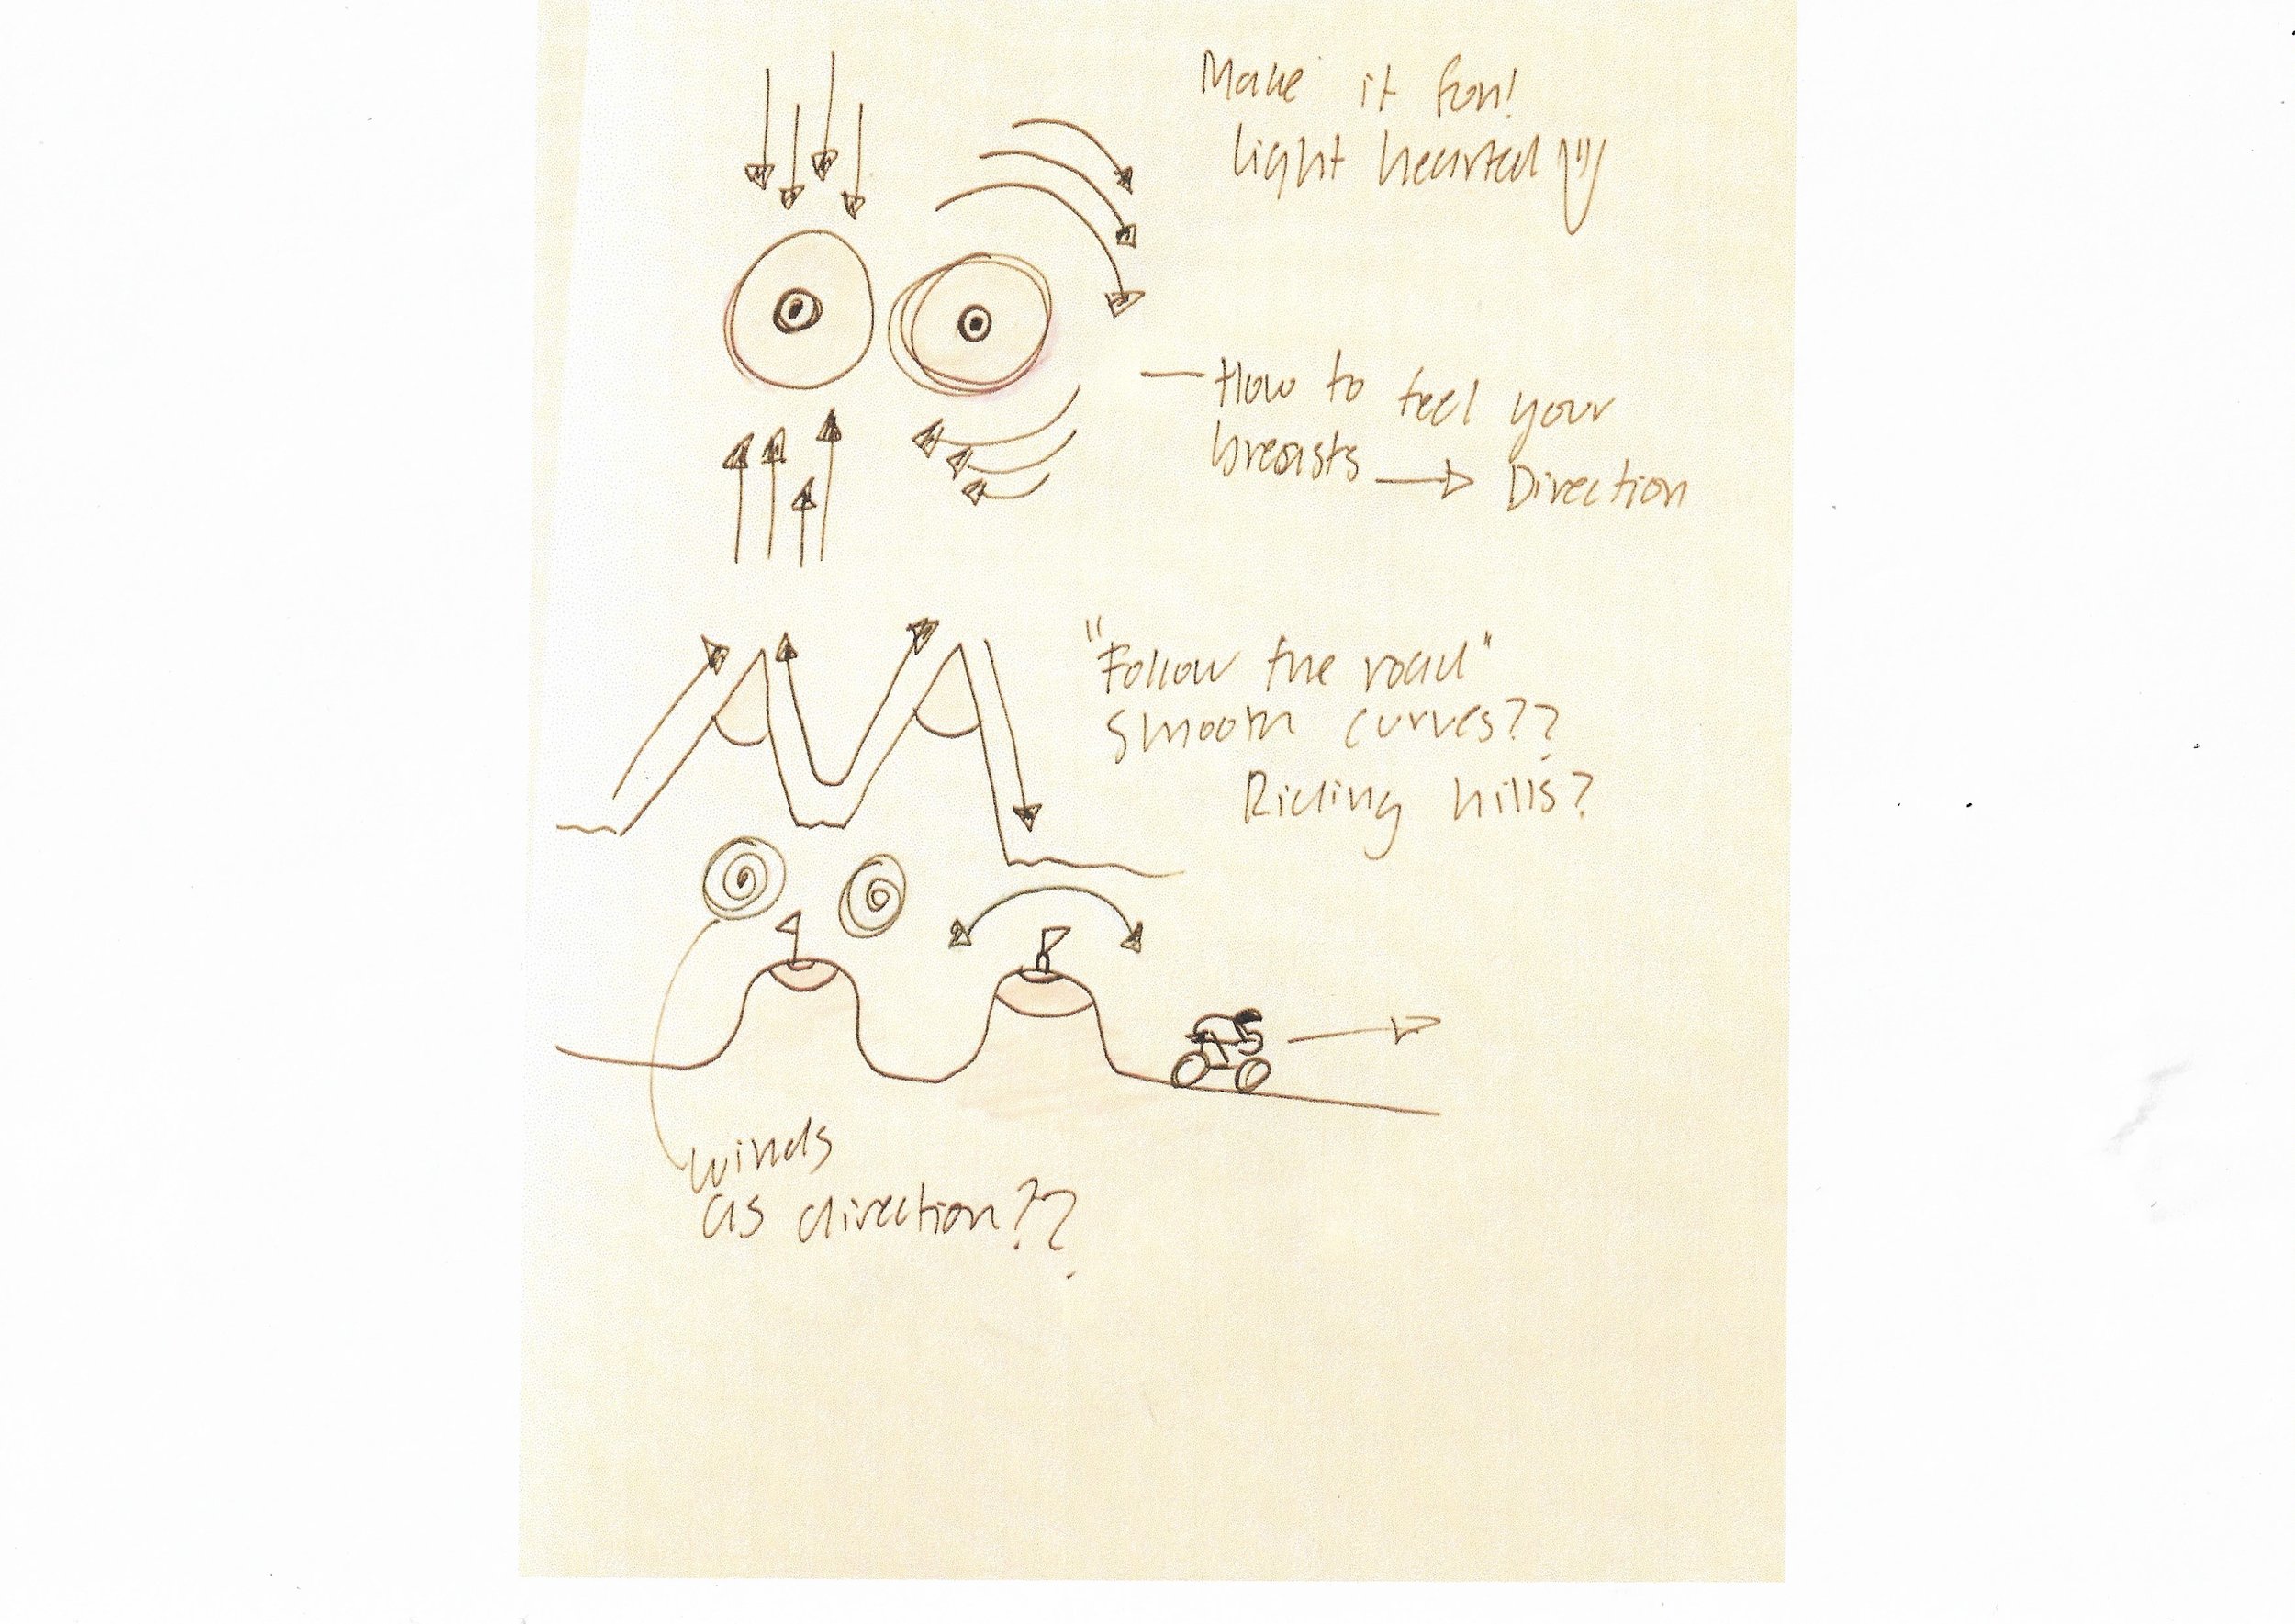 Make it fun!
light hearted
— How to feel your
breasts → Direction
"Follow the road"
smooth curves??
Riding hills?
winds
as direction??